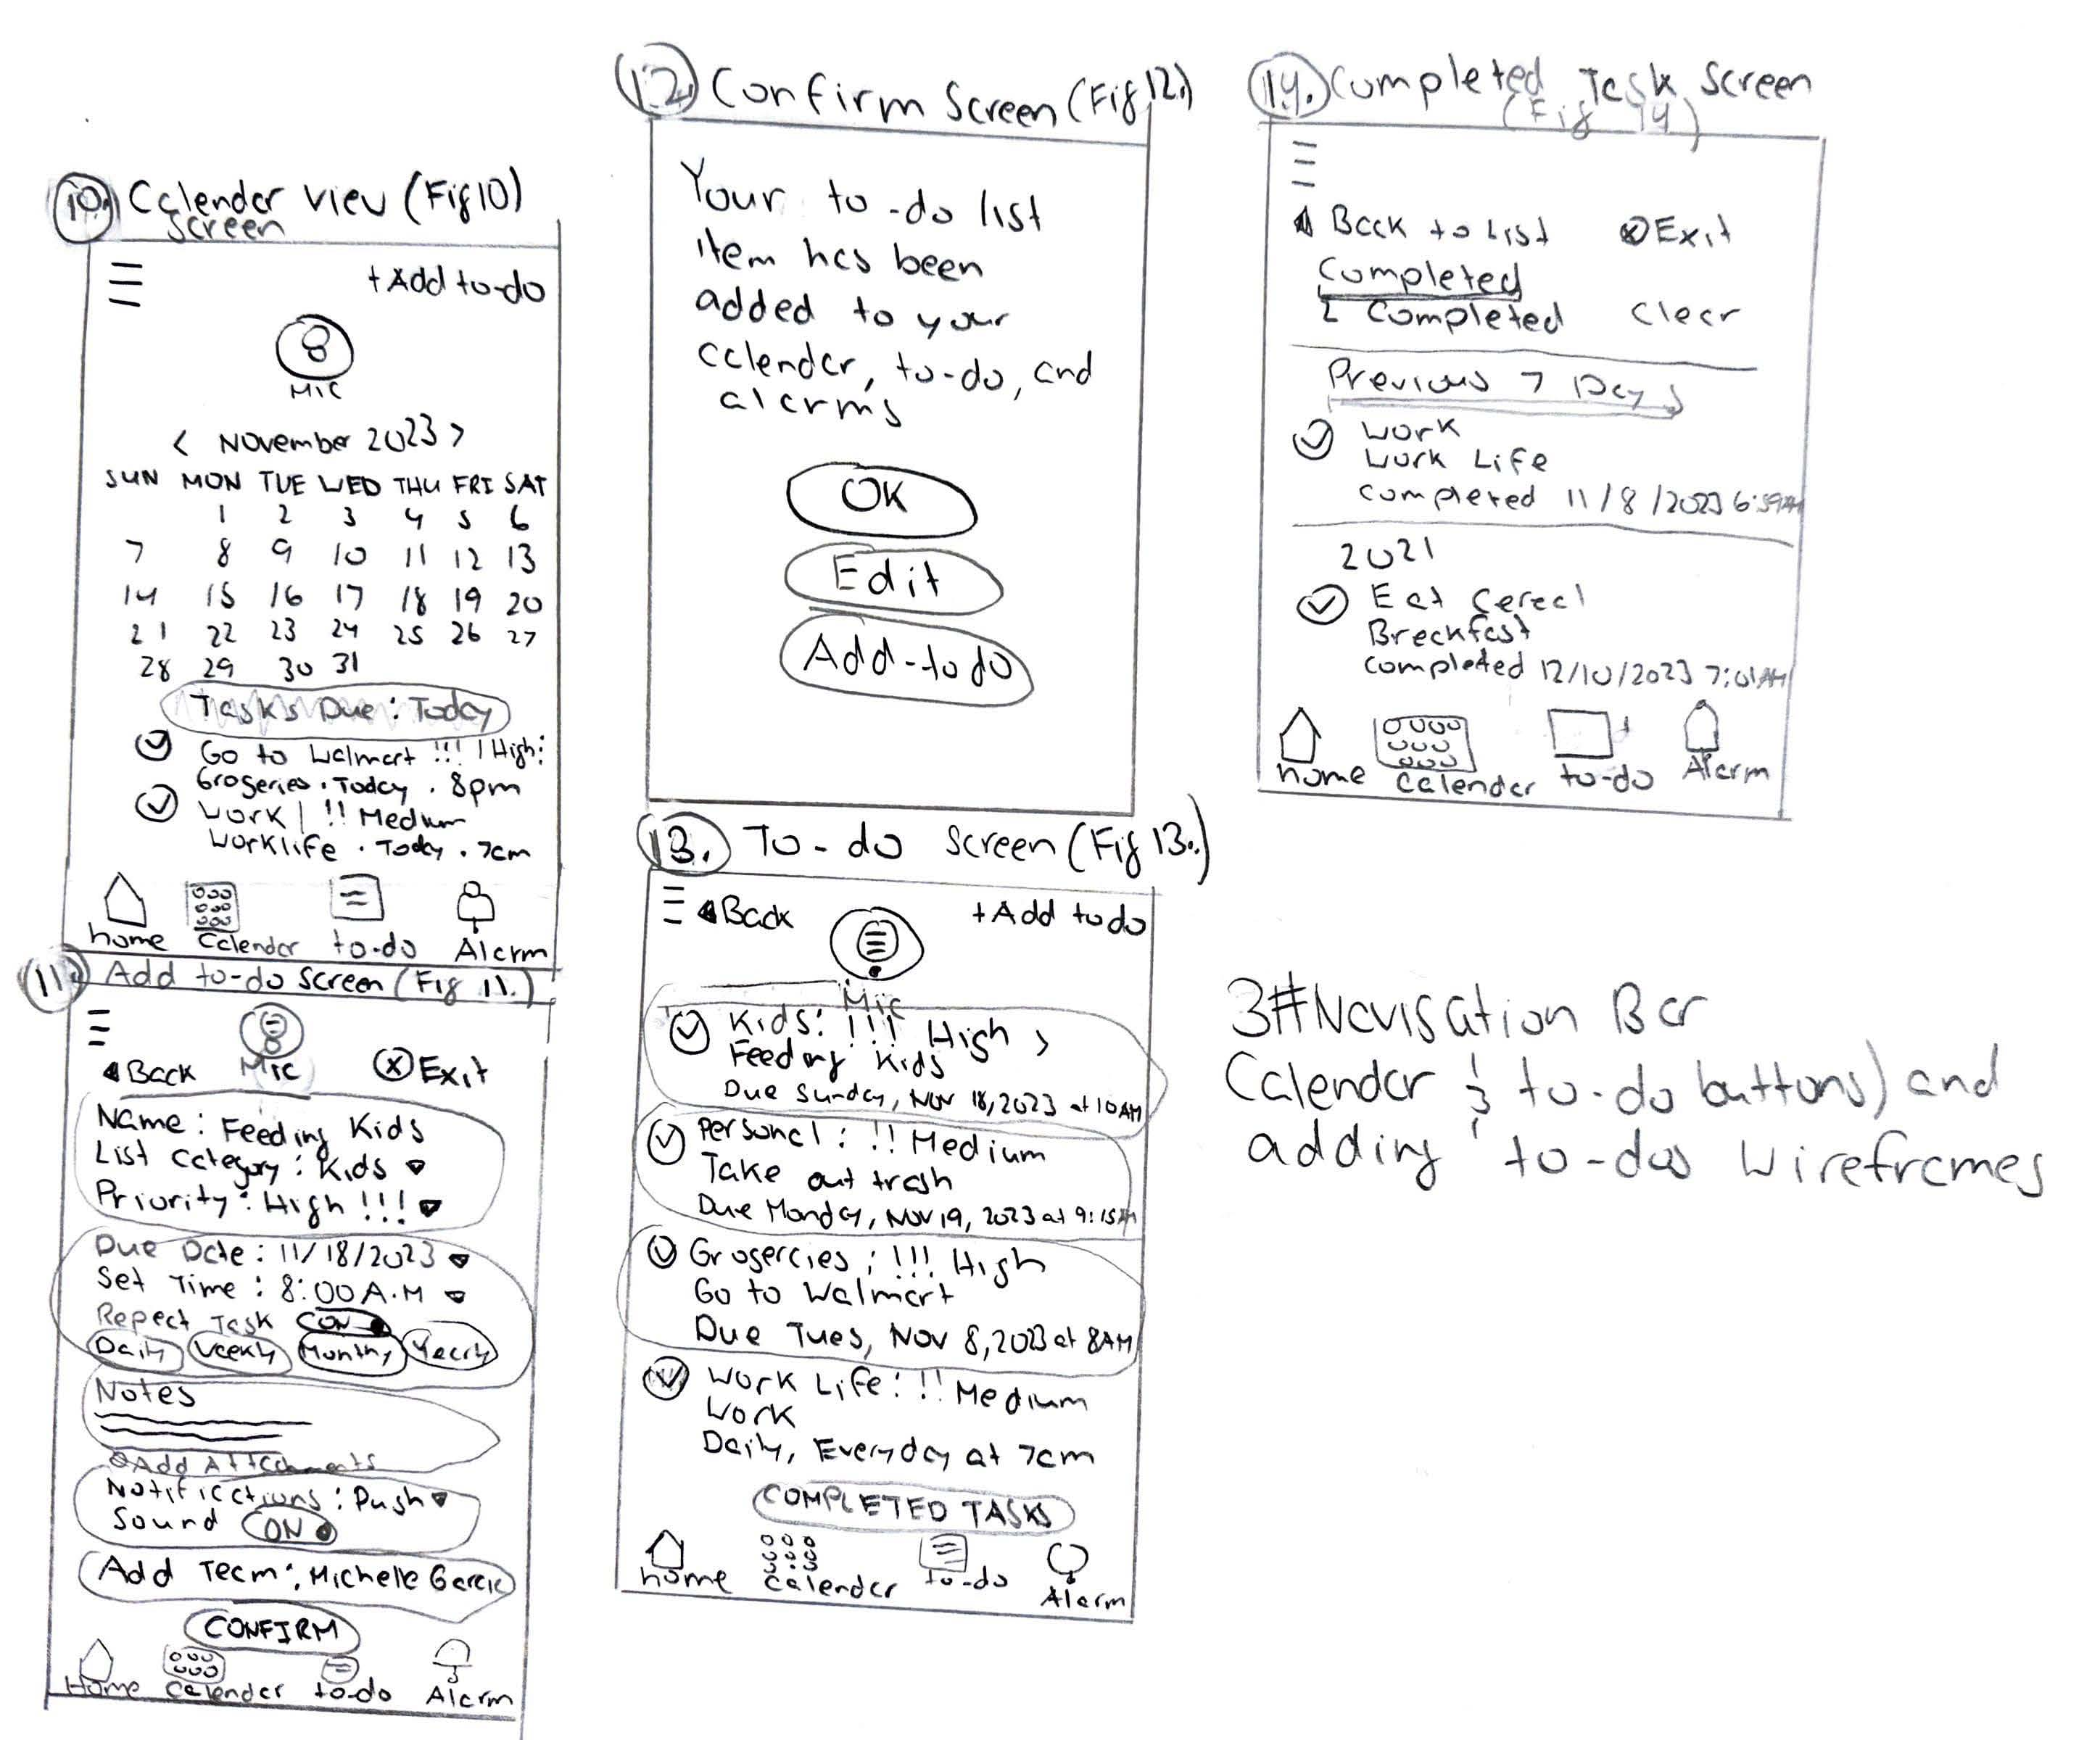 10. Calender View (Fig 10)
screen
+Add to-do
MIC
< November 2023 >
SUN MON TUE WED THU FRI SAT
1 2 3 4 5 6
7 8 9 10 11 12 13
14 15 16 17 18 19 20
21 22 23 24 25 26 27
28 29 30 31
Tasks Due: Today
Go to Walmart !!! | High:
Groseries . Today . 8pm
Work | !! Medium
Worklife . Today . 7am
home Calender to-do Alarm
11. Add to-do screen (Fig 11.)
Mic
Back
Exit
Name: Feeding Kids
List Category: Kids
Priority: High !!!
Due Date: 11/18/2023
Set Time: 8:00 A.M
Repeat Task ON
Daily Weekly Monthly Yearly
Notes
Add Attachments
Notifications: Push
Sound ON
Add Team: Michelle Garcia
CONFIRM
Home Calender to-do Alarm
12. Confirm Screen (Fig 12.)
Your to-do list
item has been
added to your
calendar, to-do, and
alarms
OK
Edit
Add-to do
13. To-do screen (Fig 13.)
Back
+Add to do
Mic
Kids: !!! High >
Feeding Kids
Due Sunday, Nov 18, 2023 at 10AM
Personal: !! Medium
Take out trash
Due Monday, Nov 19, 2023 at 9:15AM
Grosercies: !!! High
Go to Walmart
Due Tues, Nov 8, 2023 at 8AM
Work Life: !! Medium
Work
Daily, Everyday at 7am
COMPLETED TASKS
home Calender to-do Alarm
14. Completed Task Screen
(Fig 14)
Back to List
Exit
Completed
2 Completed Clear
Previous 7 Days
Work
Work Life
completed 11/8/2023 6:59AM
2021
Eat Cereal
Breakfast
completed 12/10/2023 7:01AM
home Calender to-do Alarm
3#Navigation Bar
Calendar & to-do buttons) and
adding to-dos wireframes